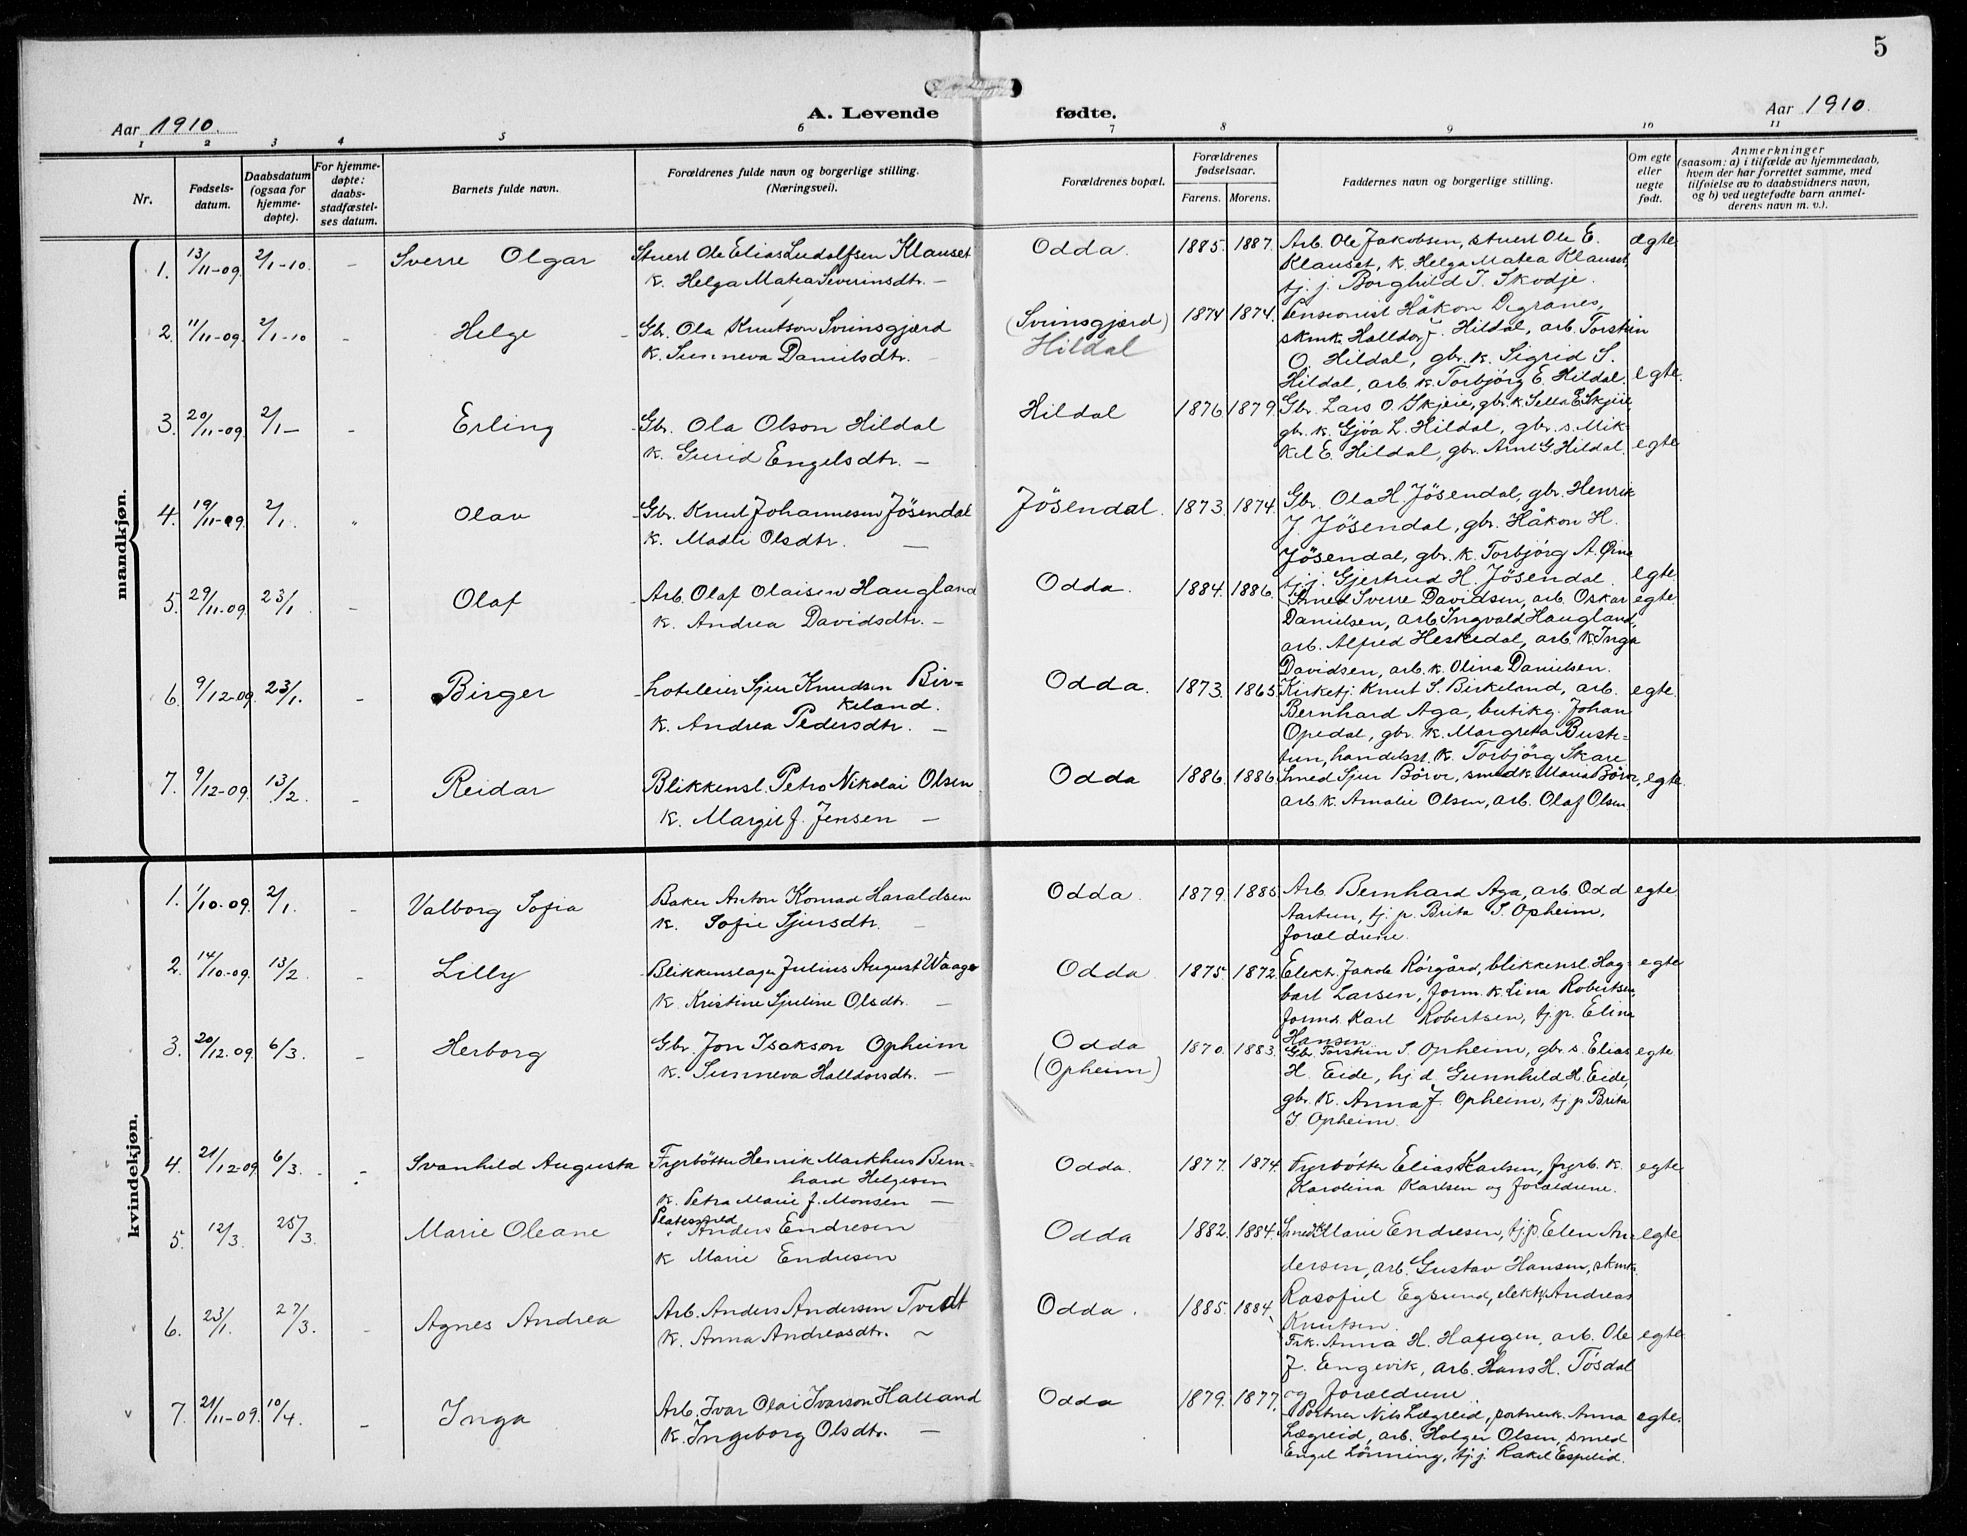 5
Aar 1910.
A. Levende fødte.
Aar 1910.
1 2 3 4 5 6 7 8 9 10 11
Nr.
Fødsels-
datum.
Daabsdatum
(ogsaa for
hjemme-
døpte).
For hjemme-
døpte:
daabs-
stadfæstel-
ses datum.
Barnets fulde navn.
Forældrenes fulde navn og borgerlige stilling.
(Næringsvei).
Forældrenes bopæl.
Forældrenes
fødselsaar.
Farens. Morens.
Faddernes navn og borgerlige stilling.
Om egte
eller
uegte
født.
Anmerkninger
(saasom: a) i tilfælde av hjemmedaab,
hvem der har forrettet samme, med
tilføielse av to daabsvidners navn,
og b) ved uegtefødte barn anmel-
derens navn m. v.).
mandkjøn.
1. 13/11-09. 2/1-10. - Sverre Olgar
Stuert Ole Elias Ludolfsen Klauset
k. Helga Matea Severinsdtr. -
Odda. 1885. 1887.
Arb. Ole Jakobsen, stuert Ole E.
Klauset, k. Helga Matea Klauset,
tj. j. Borghild I. Skodje.
ægte
2. 11/11-09. 2/1-10 - Helge
Gbr. Ola Knutson Svinsgjærd
k. Sunneva Danielsdtr. -
(Svinsgjærd)
Hildal
1874 1874.
Pensionist Håkon Digranes,
skmk. Halldor J. Hildal, arb. Torstein
O. Hildal, gbr. k. Sigrid S.
Hildal, arb. k. Torbjörg E. Hildal.
egte.
3. 20/11-09. 2/1- - Erling
Gbr. Ola Olson Hildal
k. Gurid Engelsdtr. -
Hildal 1876 1879.
Gbr. Lars O. Skjeie, gbr. k. Sella E Skjeie,
gbr. k. Gjöa L. Hildal, gbr. s. Mik-
kel E. Hildal, gbr. Arne G. Hildal
egte
4. 19/11-09. 2/1. " Olav
Gbr. Knut Johannesen Jösendal
k. Madli Olsdtr. -
Jösendal. 1873. 1874.
Gbr. Ola H. Jösendal, gbr. Henrik
J. Jösendal, gbr. Håkon H.
Jösendal, gbr. k. Torbjörg A.
tj. j. Gjertrud H. Jösendal.
egte
5. 29/11.09. 23/1 - Olaf
Arb. Olaf Olaisen Haugland
k. Andrea Davidsdtr. -
Odda. 1884. 1886.
Smed Sverre Davidsen, arb. Oskar
Danielsen, arb. Ingvald Haugland,
arb. Alfred Heskedal, arb. k. Inga
Davidsen, arb. k. Olina Danielsen.
egte.
6. 9/12-09. 23/1. - Birger
hoteleier Sjur Knudsen Bir-
keland.
k. Andrea Pedersdtr. -
Odda. 1873. 1865.
Kirketj. Knut S. Birkeland, arb.
Bernhard Aga, butikg. Johan
Opedal, gbr. k. Margreta Buste-
tun, handelsst. k. Torbjörg Skare
egte.
7. 9/12-09. 13/2. - Reidar
Blikkensl. Petro Nikolai Olsen
k. Margit J. Jensen -
Odda 1886. 1886.
Smed Sjur Börve, smedk. Maria Börve,
arb. k. Amalie Olsen, arb. Olaf Olsen
egte.
kvindekjøn.
1. 1/10-09. 2/1. - Valborg Sofia
Baker Anton Konrad Haraldsen
k. Sofie Sjursdtr. -
Odda. 1879. 1885
Arb. Bernhard Aga, arb. Odd
Aartun, tj. p. Brita S. Opheim,
forældrene.
egte
2. 14/10-09. 13/2 - Lilly
Blikkenslager Julius August Waage
k. Kristine Sjuline Olsdtr. -
Odda. 1875. 1872.
Elekt. Jakob Rörgård, blikkensl. Hag-
bart Larsen, form. k. Lina Robertsen,
formd. Karl Robertsen, tj. p. Elina
Hansen
egte
3. 20/12.09. 6/3. - Herborg
Gbr. Jon Isakson Opheim
k. Sunneva Halldorsdtr. -
Odda
(Opheim)
1870. 1883.
Gbr. Torstein S. Opheim, gbr. s. Elias
H. Eide, hj. d. Gunnhild H. Eide,
gbr. k. Anna J. Opheim, tj. p. Brita
I. Opheim.
egte
4. 21/12-09. 6/3. - Svanhild Augusta
Fyrbötter Henrik Markhus Bern-
hard Helgesen
k. Petra Marie J. Monsen -
Odda. 1877. 1874.
Fyrbötter Elias Karlsen, fyrb. k.
Karolina Karlsen og forældrene.
egte
5. 12/3. 25/3. Marie Oleane
Platesmed
Anders Endresen
k Marie Endresen
Odda 1882. 1884.
Smedk. Marie Endresen, tj. p. Elen An-
dersen, arb. Gustav Hansen, skmk.
Rasofiel Egsund, elekt. Andreas
Knutsen.
egte.
6. 23/1. 27/3. - Agnes Andrea
Arb. Anders Andersen Tvedt
k. Anna Andreasdtr. ~
Odda. 1885. 1884.
Frk. Anna H. Haugen, arb. Ole
J. Engevik, arb. Hans H. Tösdal
og forældrene
egte.
7. 21/11-09. 10/4. - Inga
Arb. Ivar Olai Ivarson Halland
k. Ingeborg Olsdtr. -
Odda 1879. 1877.
Portner Nils Lægreid, portnerk. Anna
Lægreid, arb. Holger Olsen, smed
Engel Lönning, tj. j. Rakel Espelid.
egte.